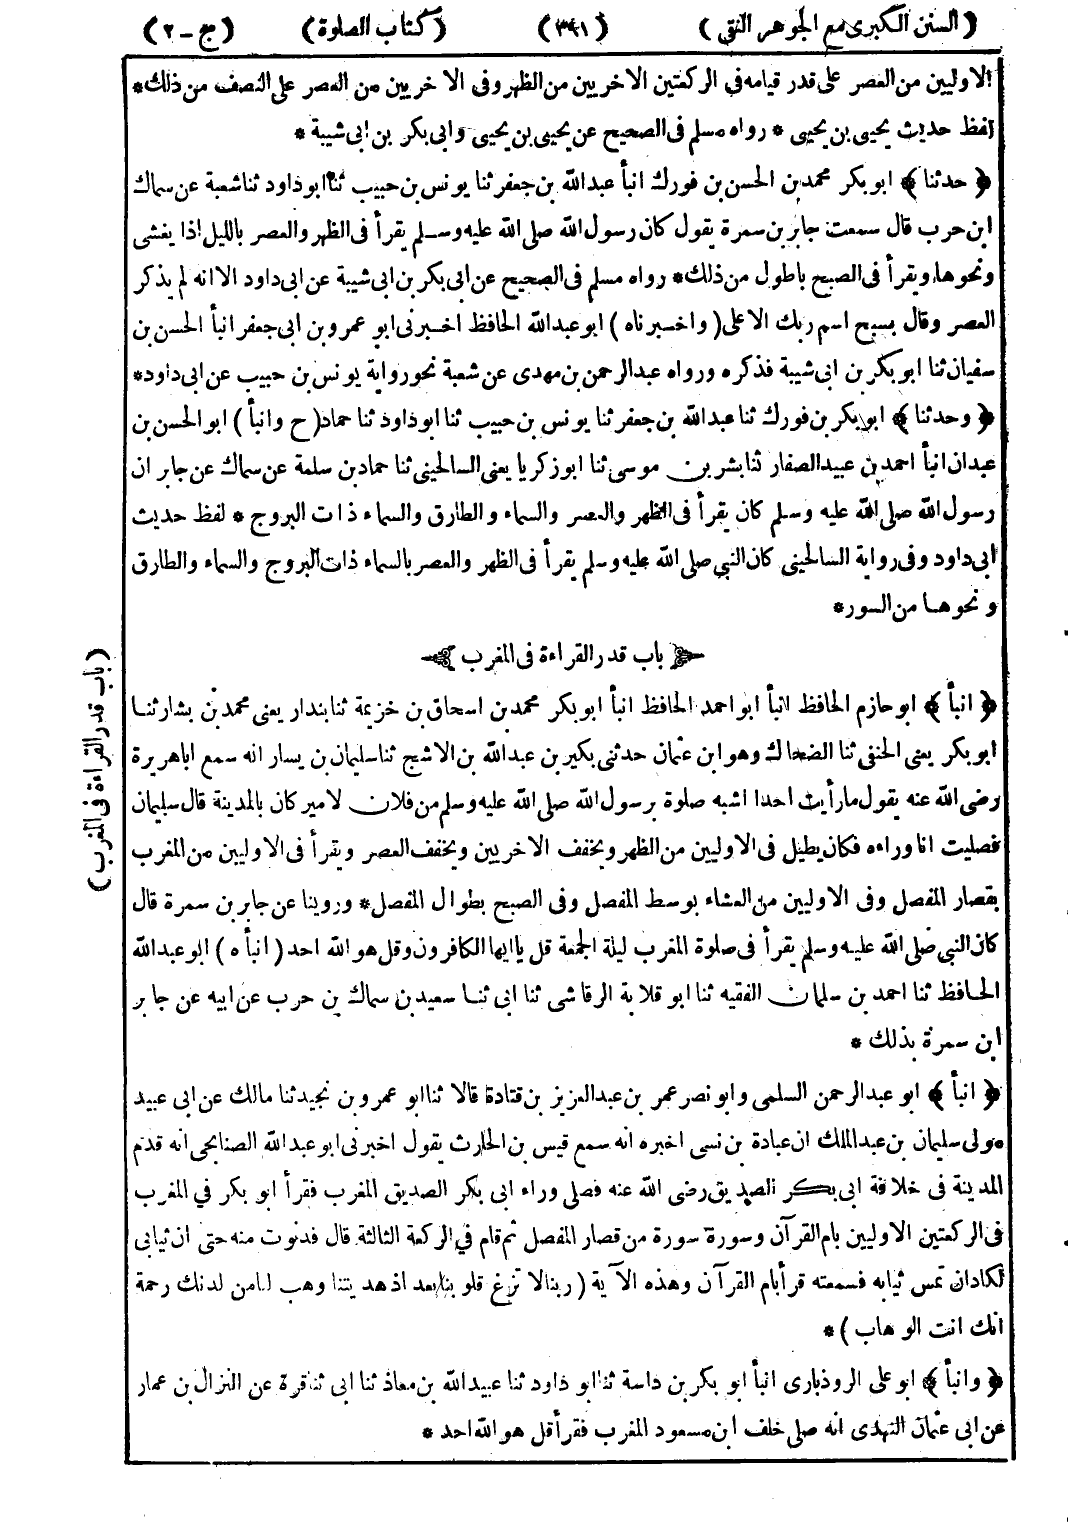 (السنن الكبرى مع الجوهر النقى) (٣٩١) (كتاب الصلوة) (ج-٢)
الاوليين من العصر على قدر قيامه في الركعتين الاخريين من الظهر وفى الاخريين من العصر على النصف من ذلك*
لفظ حديث يحيى بن يحيى * رواه مسلم فى الصحيح عن يحيى بن يحيى وابى بكر بن ابى شيبة *
﴿ حدثنا ﴾ ابو بكر محمد بن الحسن بن فورك انبأ عبدالله بن جعفر ثنا يونس بن حبيب ثنا ابو داود ثنا شعبة عن سماك
ابن حرب قال سمعت جابر بن سمرة يقول كان رسول الله صلى الله عليه وسلم يقرأ فى الظهر والعصر بالليل اذا يغشى
ونحوها ويقرأ فى الصبح باطول من ذلك* رواه مسلم فى الصحيح عن ابى بكر بن ابى شيبة عن ابى داود الا انه لم يذكر
العصر وقال بسبح اسم ربك الاعلى (واخبرناه) ابو عبدالله الحافظ اخبرنى ابو عمرو بن ابى جعفر انبأ الحسن بن
سفيان ثنا ابو بكر بن ابى شيبة فذكره ورواه عبدالرحمن بن مهدى عن شعبة نحو رواية يونس بن حبيب عن ابى داود*
﴿ وحدثنا ﴾ ابو بكر بن فورك ثنا عبدالله بن جعفر ثنا يونس بن حبيب ثنا ابو داود ثنا حماد (ح وانبأ) ابو الحسن بن
عبدان انبأ احمد بن عبيد الصفار ثنا بشر بن موسى ثنا ابو زكريا يعنى السالحينى ثنا حماد بن سلمة عن سماك عن جابر ان
رسول الله صلى الله عليه وسلم كان يقرأ فى الظهر والعصر والسماء والطارق والسماء ذات البروج * لفظ حديث
ابى داود وفى رواية السالحينى كان النبى صلى الله عليه وسلم يقرأ فى الظهر والعصر بالسماء ذات البروج والسماء والطارق
ونحوها من السور*
باب قدر القراءة فى المغرب
(باب قدر القراءة فى المغرب)
﴿ انبأ ﴾ ابو حازم الحافظ انبأ ابو احمد الحافظ انبأ ابو بكر محمد بن اسحاق بن خزيمة ثنا بندار يعنى محمد بن بشار ثنا
ابو بكر يعنى الحنفى ثنا الضحاك وهو ابن عثمان حدثنى بكير بن عبدالله بن الاشج ثنا سليمان بن يسار انه سمع اباهريرة
رضى الله عنه يقول ما رأيت احدا اشبه صلوة برسول الله صلى الله عليه وسلم من فلان لامير كان بالمدينة قال سليمان
فصليت انا وراءه فكان يطيل فى الاوليين من الظهر ويخفف الاخريين ويخفف العصر ويقرأ فى الاوليين من المغرب
بقصار المفصل وفى الاوليين من العشاء بوسط المفصل وفى الصبح بطوال المفصل* وروينا عن جابر بن سمرة قال
كان النبى صلى الله عليه وسلم يقرأ فى صلوة المغرب ليلة الجمعة قل يا ايها الكافرون وقل هو الله احد (انبأه) ابو عبدالله
الحافظ ثنا احمد بن سلمان الفقيه ثنا ابو قلابة الرقاشى ثنا ابى ثنا سعيد بن سماك بن حرب عن ابيه عن جابر
ابن سمرة بذلك *
﴿ انبأ ﴾ ابو عبدالرحمن السلمى وابو نصر عمر بن عبدالعزيز بن قتادة قالا ثنا ابو عمرو بن نجيد ثنا مالك عن ابى عبيد
مولى سليمان بن عبدالملك ان عبادة بن نسى اخبره انه سمع قيس بن الحارث يقول اخبرنى ابو عبدالله الصنابحى انه قدم
المدينة فى خلافة ابى بكر الصديق رضى الله عنه فصلى وراء ابى بكر الصديق المغرب فقرأ ابو بكر في المغرب
فى الركعتين الاوليين بام القرآن وسورة سورة من قصار المفصل ثم قام في الركعة الثالثة قال فدنوت منه حتى ان ثيابى
لكادان تمس ثيابه فسمعته قرأ بام القرآن وهذه الآية (ربنا لا تزغ قلوبنا بعد اذ هديتنا وهب لنا من لدنك رحمة
انك انت الوهاب) *
﴿ وانبأ ﴾ ابو على الروذبارى انبأ ابو بكر بن داسة ثنا ابو داود ثنا عبيدالله بن معاذ ثنا ابى ثنا قرة عن النزال بن عمار
عن ابى عثمان النهدى انه صلى خلف ابن مسعود المغرب فقرأ قل هو الله احد *